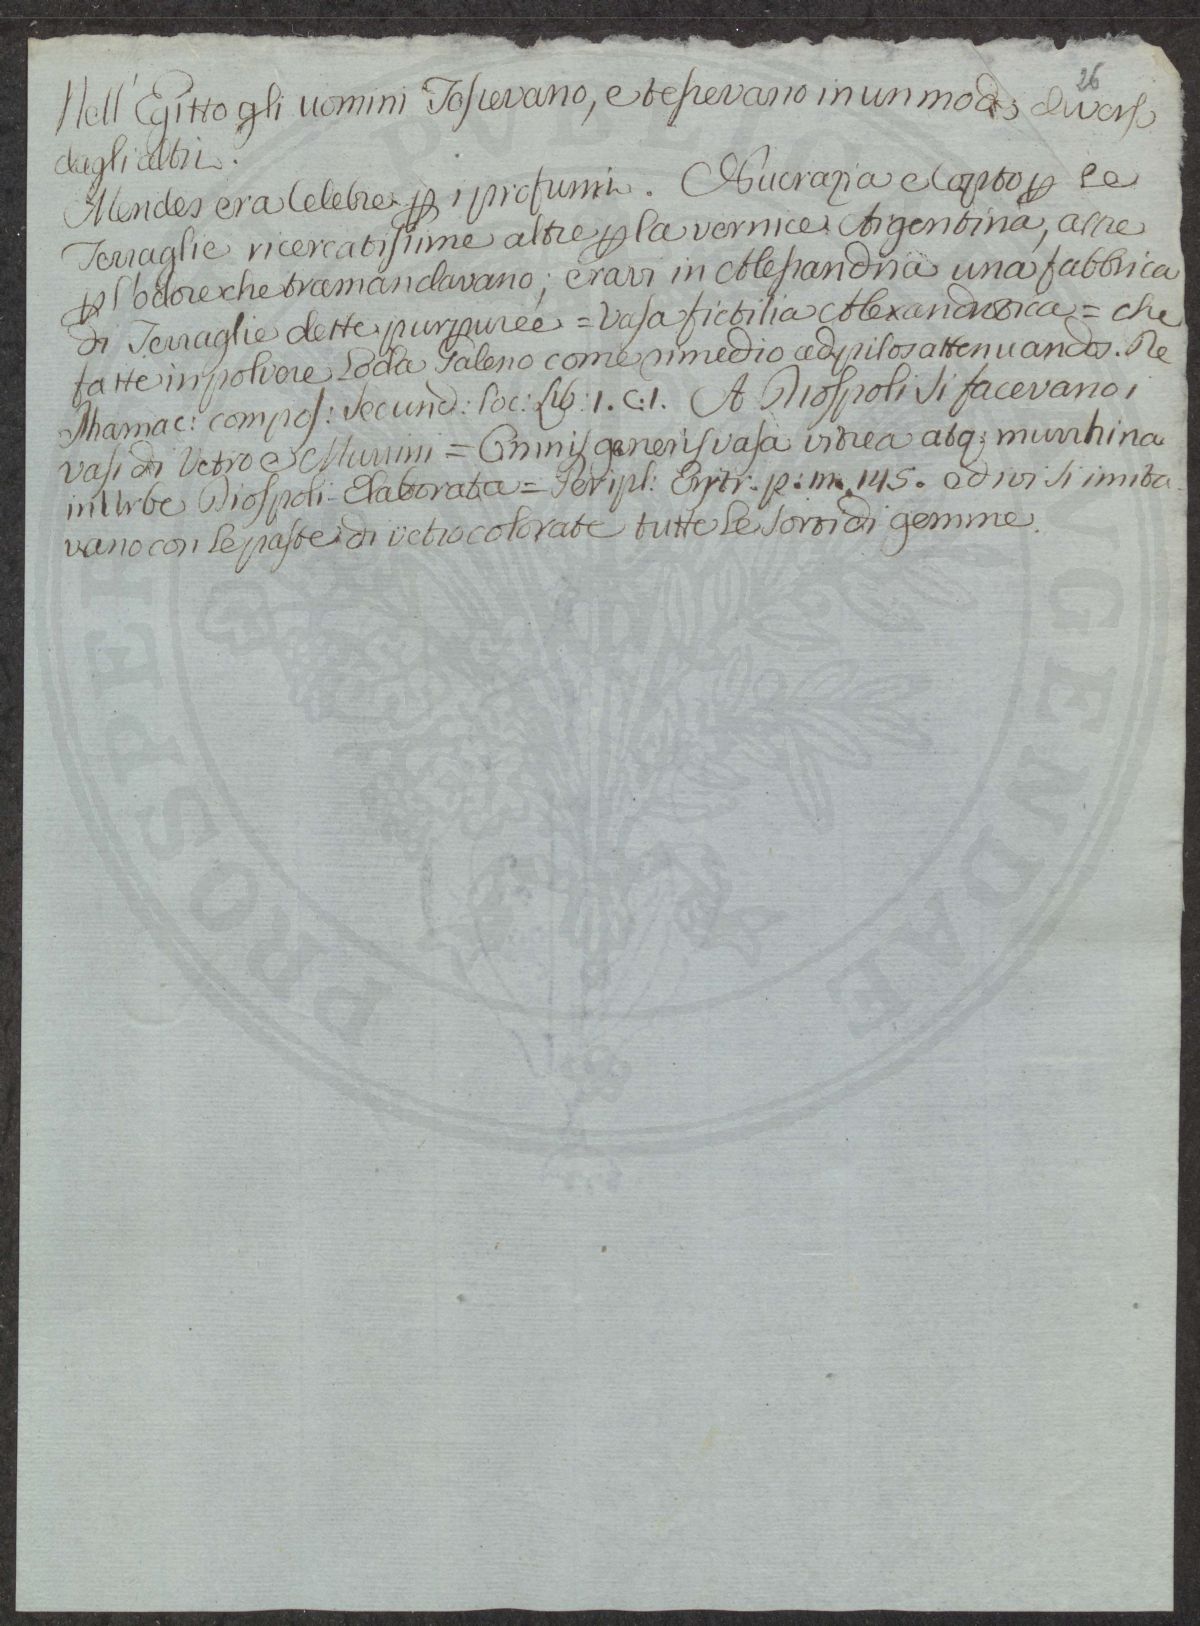 26
Nell' Egitto gli uomini Tessevano, e tessevano in un modo diverso
dagli altri.
Mendes era Celebre p i profumi. Nucrazia e Copto p le
Terraglie ricercatissime altre p la vernice Argentina, altre
p l'odore che tramandavano; eravi in Alessandria una fabbrica
di Terraglie dette purpuree = Vasa fictilia Alexandrica = che
fatte in polvere Loda Galeno come rimedio ad pilos attenuandos. De
Phamac: compos: secund: loc: Lib: 1. C: 1. A Diospoli si facevano i
vasi di Vetro e Murrini = Omnis generis vasa vitrea atq; murrhina
in Urbe Diospoli Elaborata = Peripl: Erytr: p: m. 145. ed ivi si imita-
vano con le paste di vetro colorate tutte le sorti di gemme.
PROSPERITATI PUBLICAE AUGENDAE